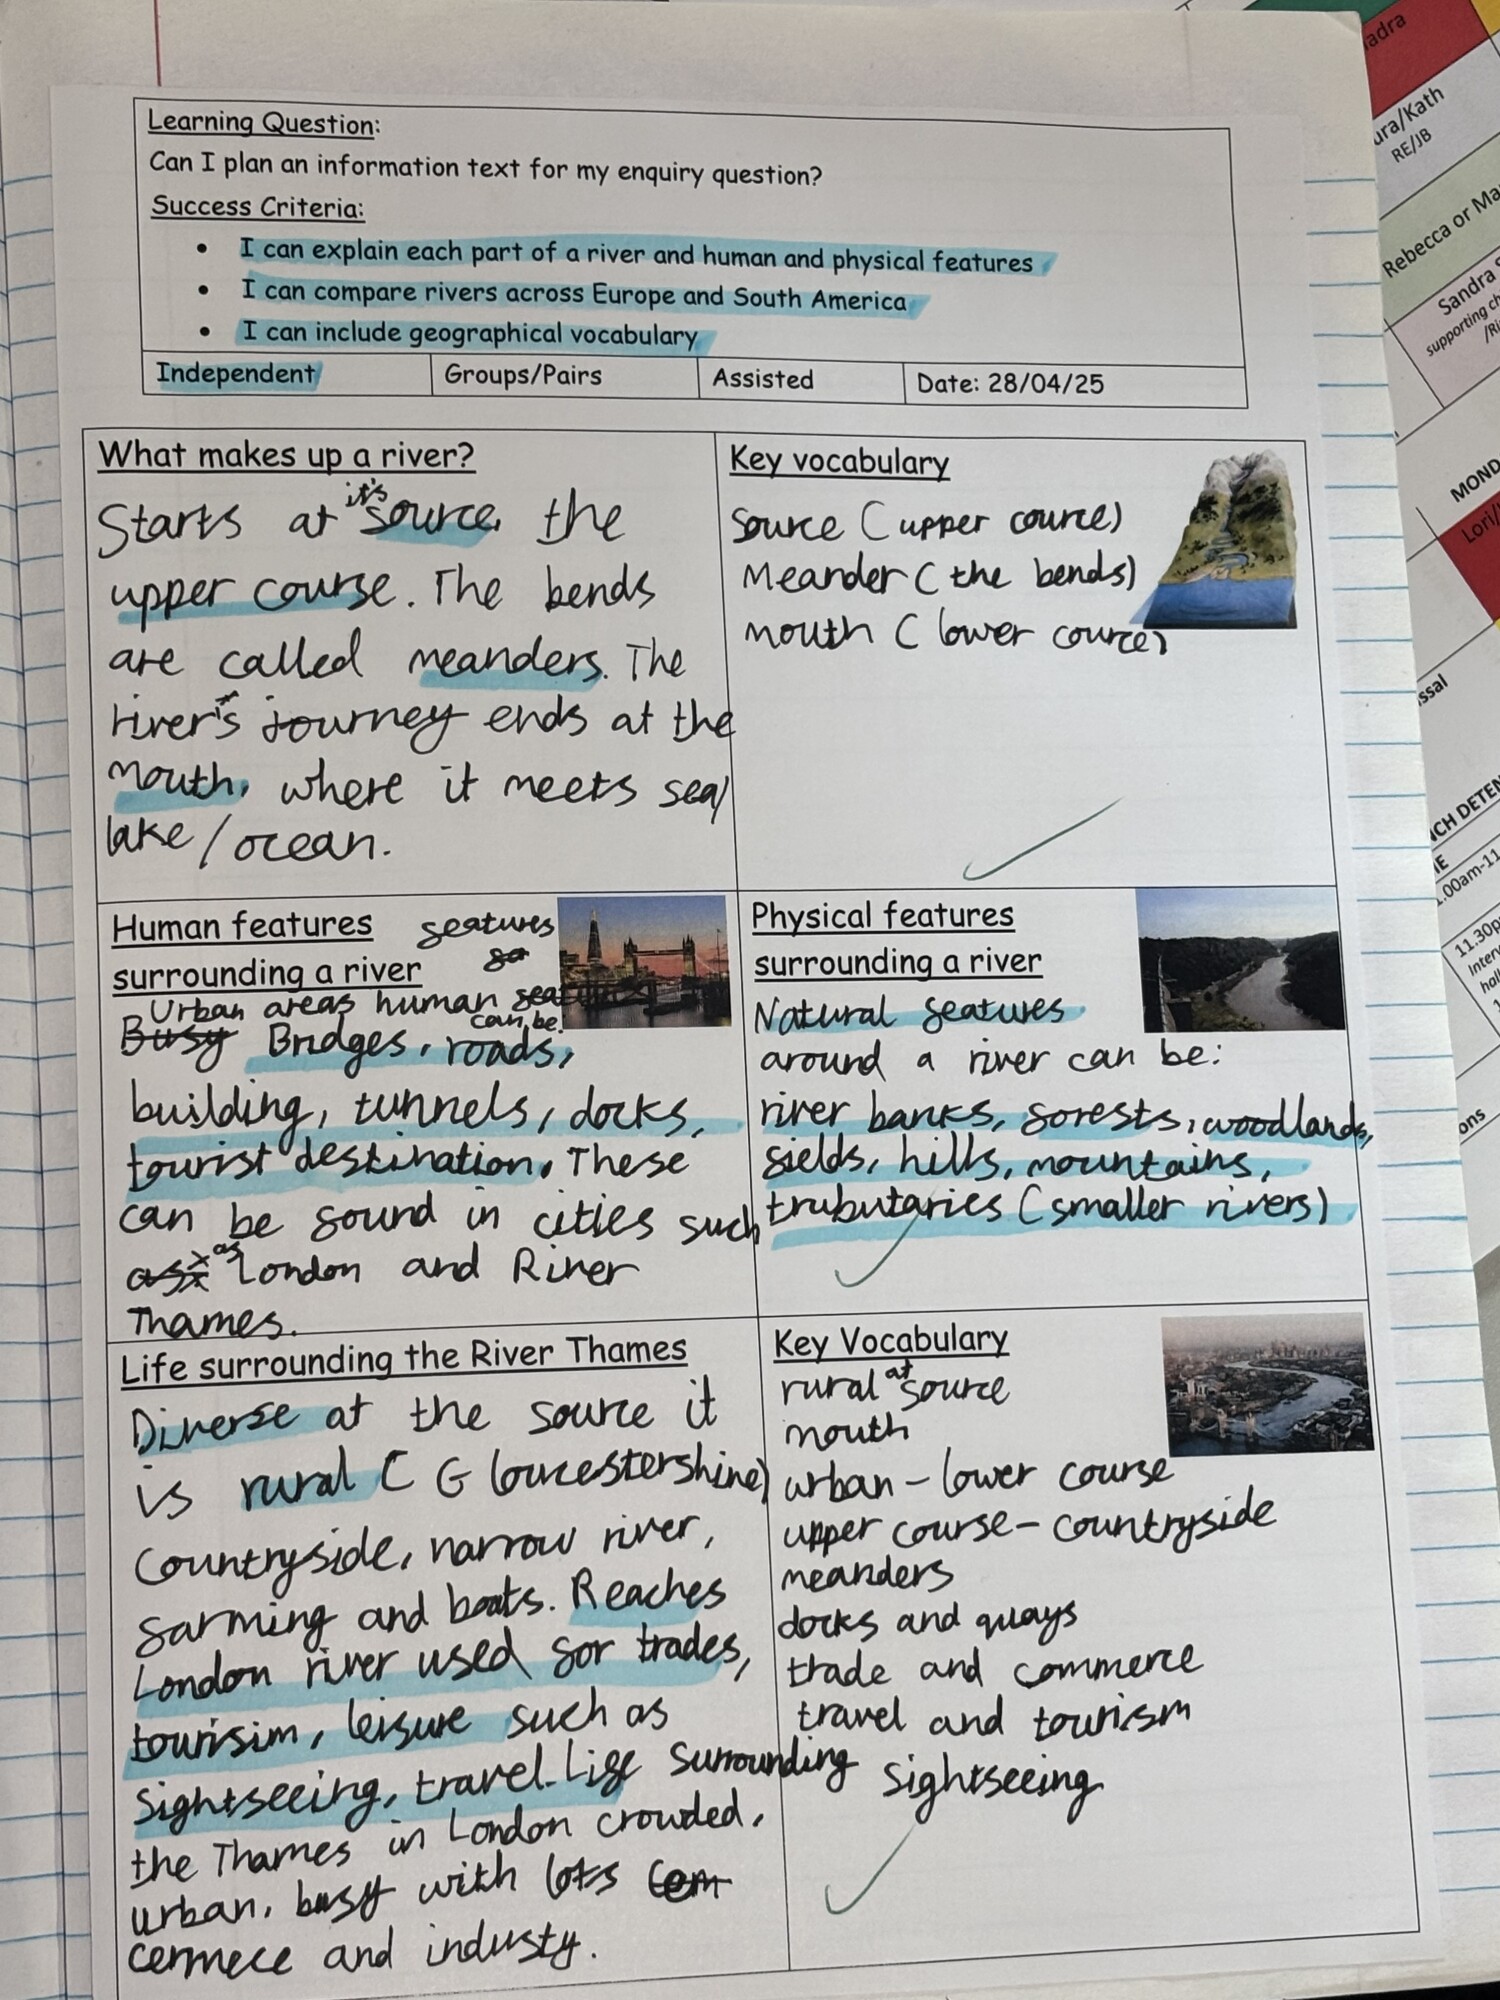 Learning Question:
Can I plan an information text for my enquiry question?
Success Criteria:
• I can explain each part of a river and human and physical features
• I can compare rivers across Europe and South America
• I can include geographical vocabulary
Independent
Groups/Pairs
Assisted
Date: 28/04/25
What makes up a river?
Starts at it's source, the
upper course. The bends
are called meanders. The
river's journey ends at the
mouth, where it meets sea/
lake/ocean.
Key vocabulary
Source (upper cource)
Meander (the bends)
mouth (lower cource)
Human features
surrounding a river
features
Urban areas human
can be:
Busy Bridges, roads,
building, tunnels, docks,
tourist destination. These
can be found in cities such
as London and River
Thames.
Physical features
surrounding a river
Natural features
around a river can be:
river banks, forests, woodlands,
fields, hills, mountains,
trubutaries (smaller rivers)
Life surrounding the River Thames
Diverse at the source it
is rural (Gloucestershire)
Countryside, narrow river,
farming and boats. Reaches
London river used for trades,
tourisim, leisure such as
sightseeing, travel. Life surrounding
the Thames in London crowded,
urban, busy with lots
cermece and industy.
Key Vocabulary
rural at source
mouth
urban - lower course
upper course - countryside
meanders
docks and quays
trade and commerce
travel and tourism
sightseeing
adra
ura/Kath
RE/JB
Rebecca or Ma
Sandra S
supporting ch
/Ri
MOND
Lori/
ssal
NCH DETEN
ME
.00am-11
11.30p
Interv
hall
ons